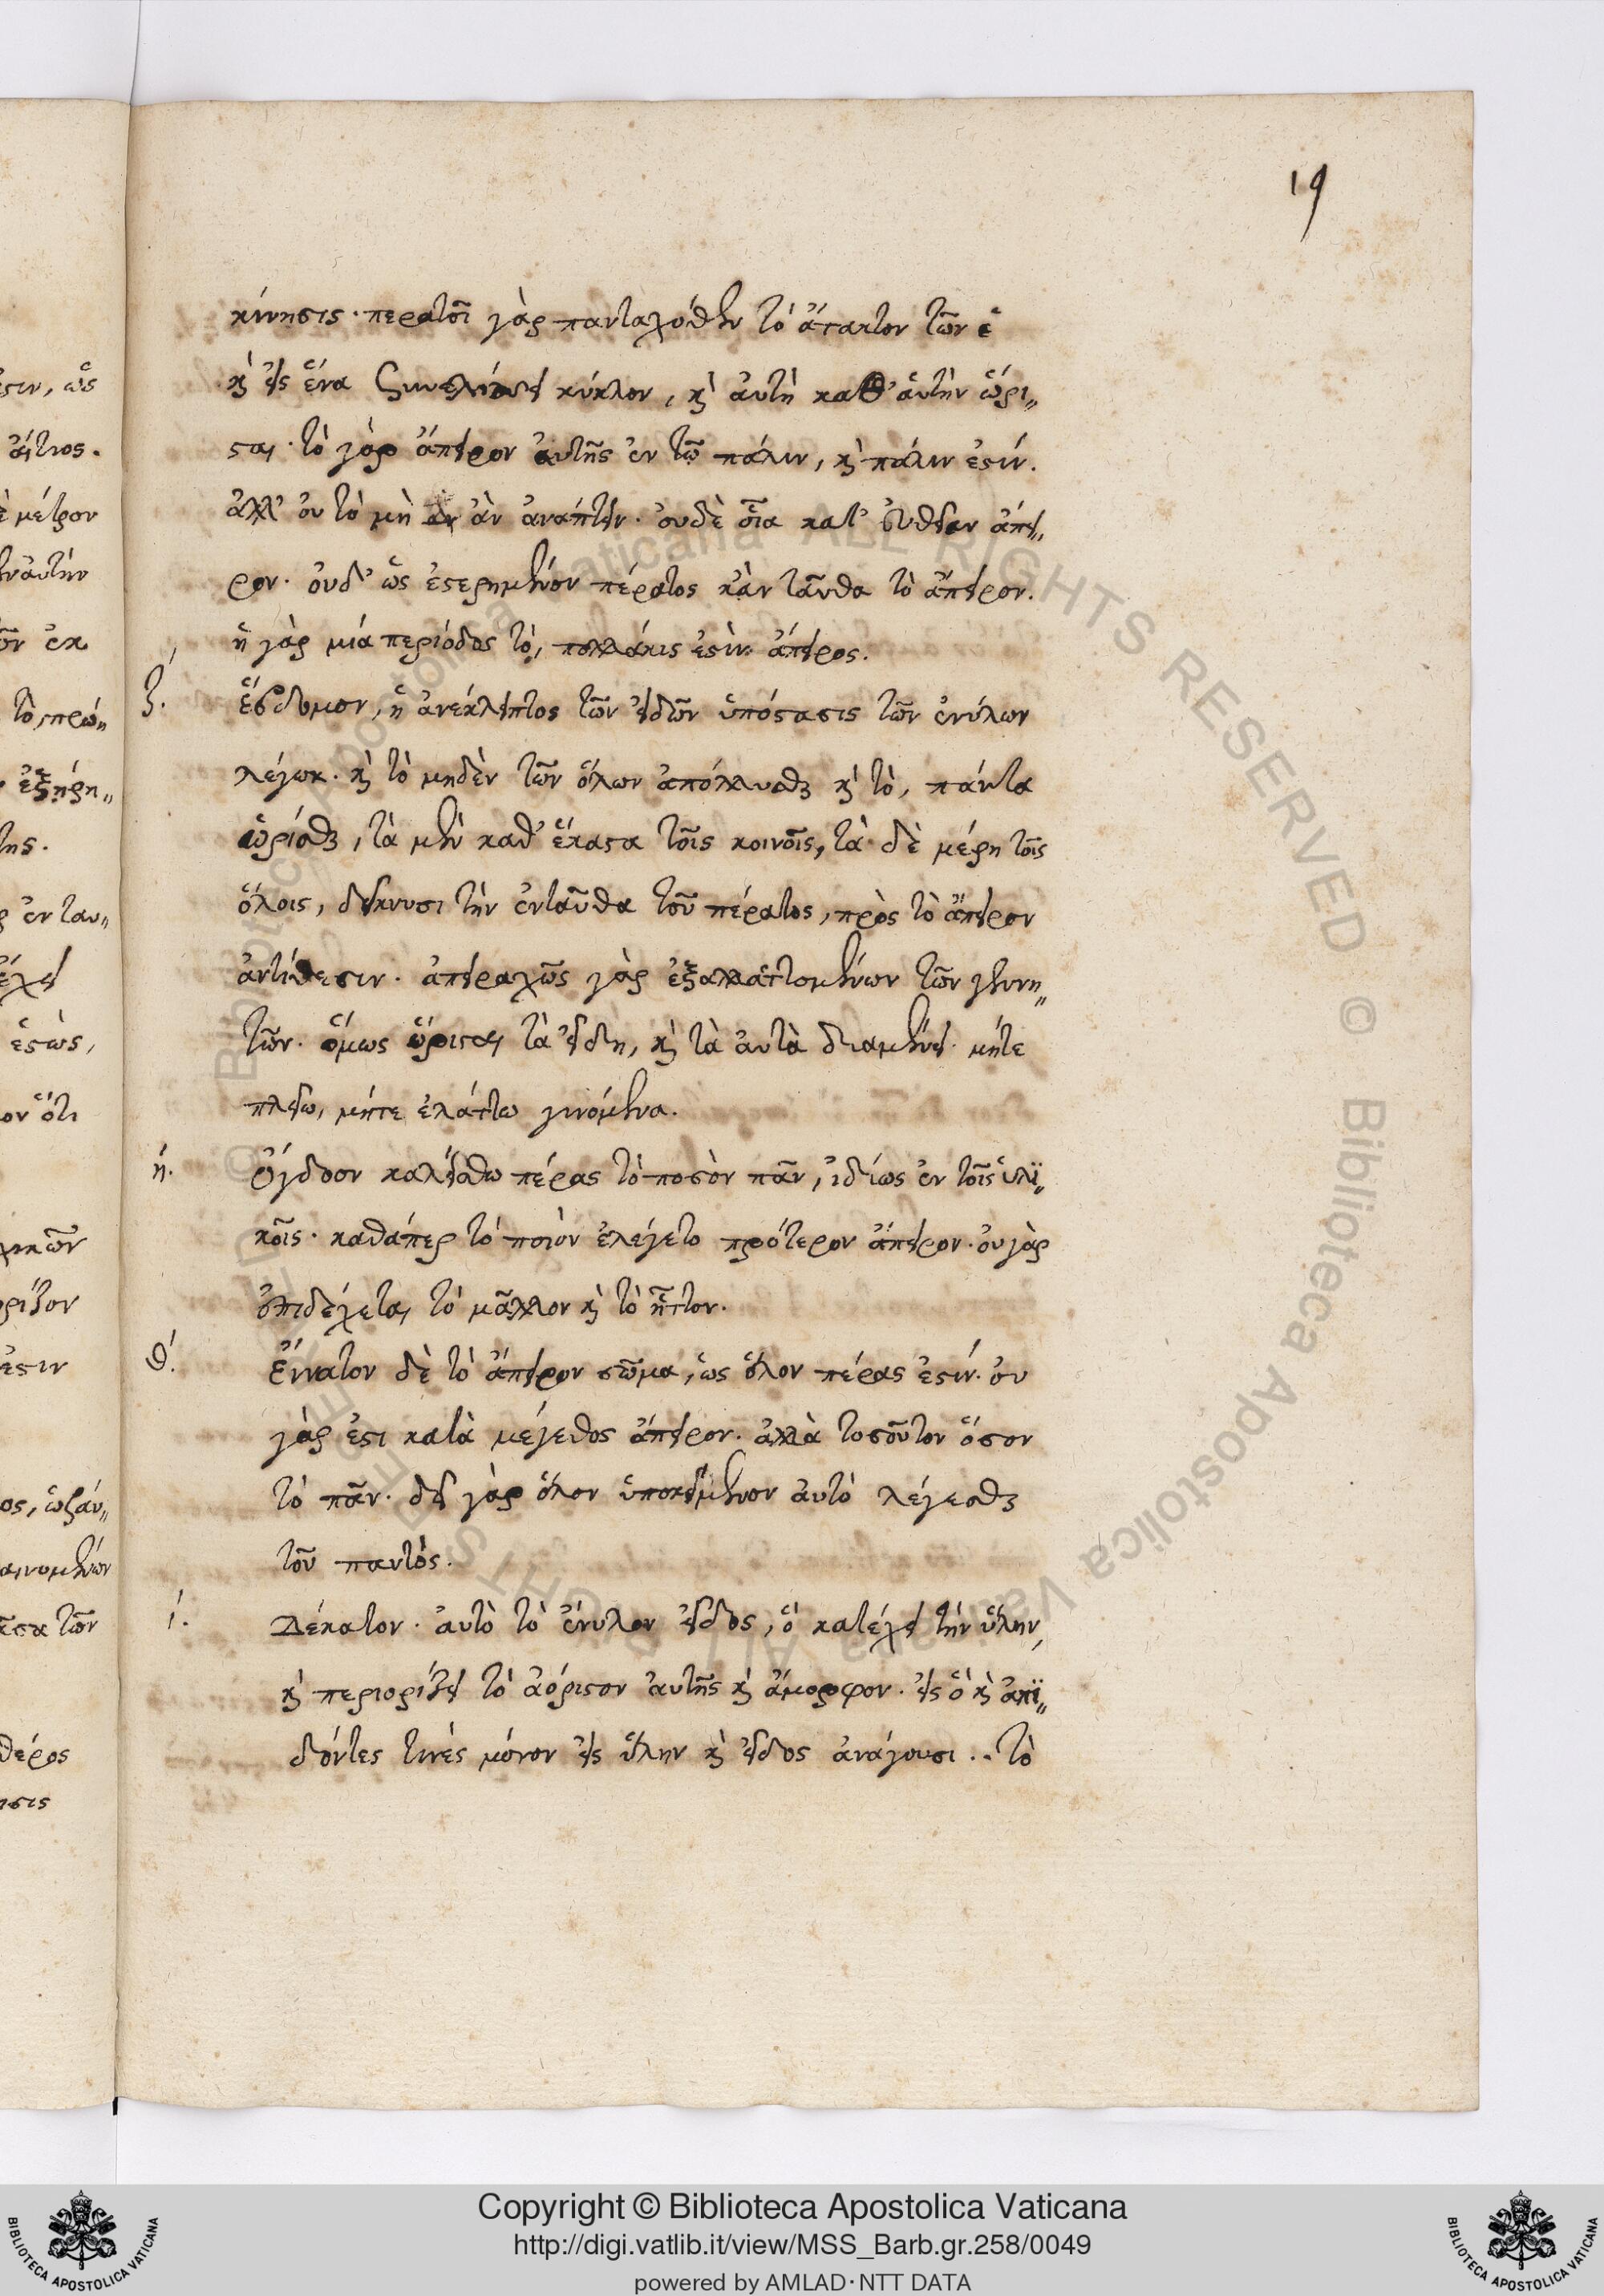 19
κίνησις· περατοῖ γὰρ πανταχόθεν τὸ ἄτακτον τῶν
κὶ εἰς ἕνα κύκλον, κὶ αὐτὴ καθ' αὑτὴν ὥρι„
σται· τὸ γὰρ ἄπειρον αὐτῆς ἐν τῷ πάλιν, κὶ πάλιν ἐστίν.
ἀλλ' οὐ τὸ μὴ ἂν ἀνάπτειν· οὐδὲ οἷα κατ' εὐθεῖαν ἄπει„
ρον· οὐδ' ὡς ἐστερημένον πέρατος κἀνταῦθα τὸ ἄπειρον.
ἡ γὰρ μία περίοδος τὸ, πολλάκις ἐστὶν ἄπειρος.
ζ΄. ἕβδομον, ἡ ἀνέκλειπτος τῶν εἰδῶν ὑπόστασις τῶν ἐνύλων
λέγων. κὶ τὸ μηδὲν τῶν ὅλων ἀπόλλυσθαι κὶ τὸ, πάντα
ὡρίσθαι, τὰ μὲν καθ' ἕκαστα τοῖς κοινοῖς, τὰ δὲ μέρη τοῖς
ὅλοις, δείκνυσι τὴν ἐνταῦθα τοῦ πέρατος, πρὸς τὸ ἄπειρον
ἀντίθεσιν. ἀπειραχῶς γὰρ ἐξαλλαττομένων τῶν γεννη„
τῶν. ὅμως ὥρισται τὰ εἴδη, κὶ τὰ αὐτὰ διαμένει. μήτε
πλείω, μήτε ἐλάττω γινόμενα.
η΄. Ὄγδοον καλείσθω πέρας τὸ ποσὸν πᾶν, ἰδίως ἐν τοῖς ὑλϊ„
κοῖς· καθάπερ τὸ ποιὸν ἐλέγετο πρότερον ἄπειρον. οὐ γὰρ
ἐπιδέχεται τὸ μᾶλλον κὶ τὸ ἧττον.
θ΄. Ἔνατον δὲ τὸ ἄπειρον σῶμα, ὡς ὅλον πέρας ἐστίν. οὐ
γάρ ἐστι κατὰ μέγεθος ἄπειρον. ἀλλὰ τοσοῦτον ὅσον
τὸ πᾶν. δεῖ γὰρ ὅλον ὑποκείμενον αὐτὸ λέγεσθαι
τοῦ παντός.
ι΄. Δέκατον. αὐτὸ τὸ ἔνυλον εἶδος, ὃ κατέχει τὴν ὕλην,
κὶ περιορίζει τὸ ἀόριστον αὐτῆς κὶ ἄμορφον. εἰς ὃ κὶ ἀπϊ„
δόντες τινὲς μόνον εἰς ὕλην κὶ εἶδος ἀνάγουσι.. τὸ
Copyright © Biblioteca Apostolica Vaticana
http://digi.vatlib.it/view/MSS_Barb.gr.258/0049
powered by AMLAD·NTT DATA